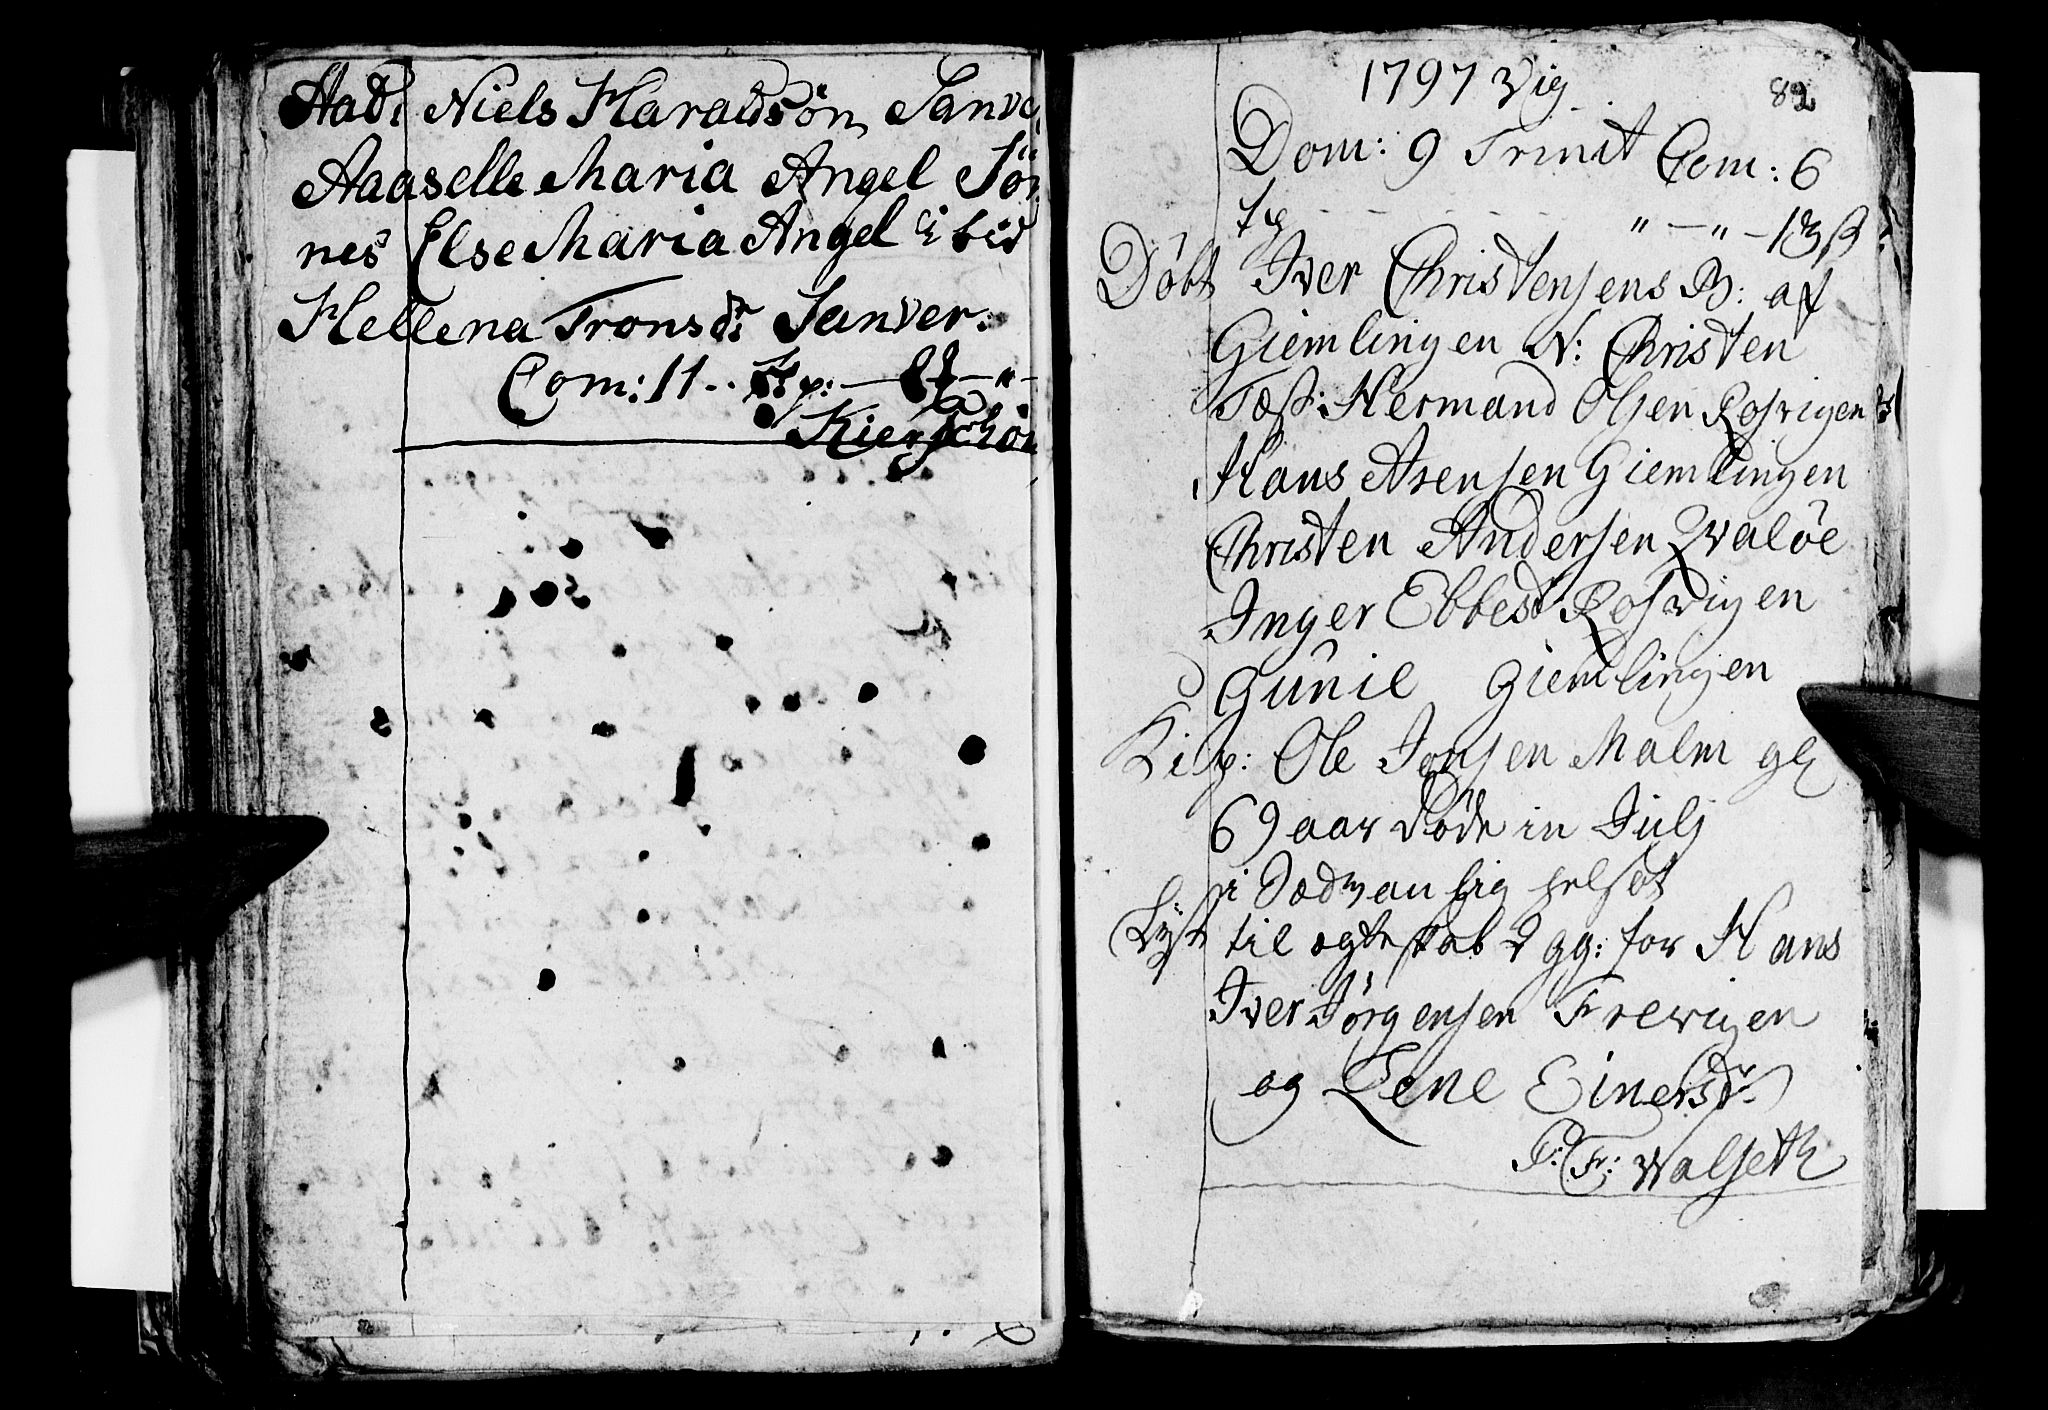 Aad: Niels Haraldsön Sanve
Aaaselle Maria Angel Sör
nes Else Maria Angel ibid
Hellena Tronsdr Sanver.
Com: 11 ..
Kiergchön
1797 Vig
82
Dom: 9 Trinit Com: 6
Tp - - - - - - " - " - 13 ß
Döbt Iver Christensens B: af
Giemlingen N: Christen
Tæst: Hermand Olsen Rosvigen
Hans Arensen Giemlingen
Christen Andersen Qvalöe
Inger Ebbesd Rosvigen
Gunil Giemlingen
Ole Jonsen Malm gl
69 aar döde in Julj
i Sædvanlig helsot
Lyst til ægteskab 2 gg: for Hans
Iver Jörgensen Frewigen
og Lene Einersdr
P: Fr: Walseth